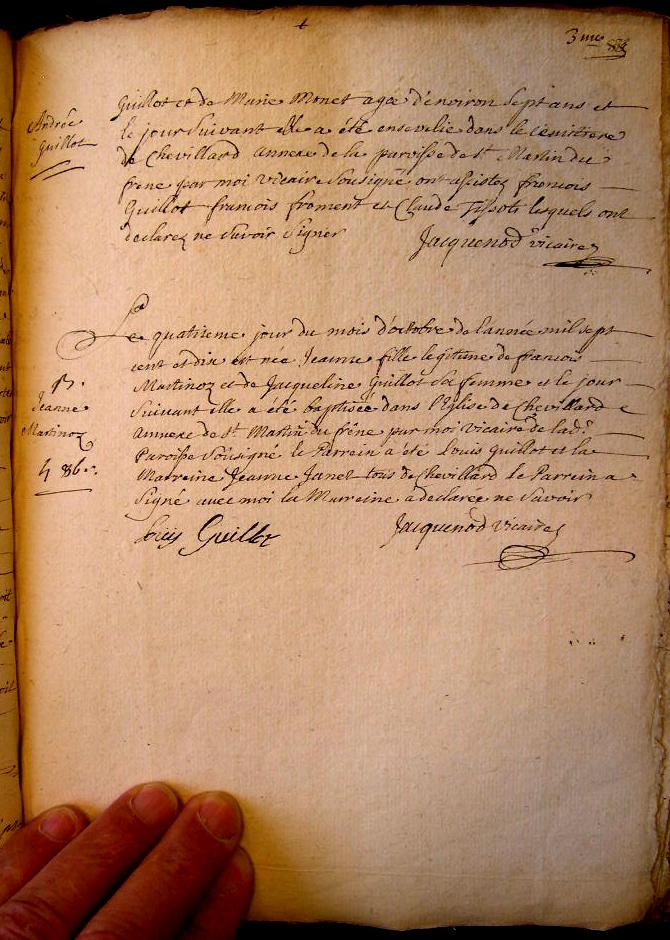 3me
Andrée
Guillot
Guillot et de Marie Monet agée d'environ sept ans et
le jour suivant elle a été ensevelie dans le cemittere
de Chevillard annexe de la paroisse de st Martin du
frêne par moi vicaire sousigné ont assistez francois
Guillot francois froment et Claude Tissot lesquels ont
declarez ne savoir signer
Jacquenod vicaire
Le quatrieme jour du mois d'octobre de l'année mil sept
cent et dix est née Jeanne fille legitime de francois
Martinoz et de Jacqueline Guillot sa femme et le jour
suivant elle a été baptisée dans l'Eglise de Chevillard
annexe de st Martin du frêne par moi vicaire de ladt
Paroisse sousigné le Parrein a été Louis Guillot et la
Marreine Jeanne Janet tous de Chevillard le Parrein a
signé avec moi la Marreine a declarée ne savoir
Jeanne
Martinoz
Loüis Guillot
Jacquenod vicaire